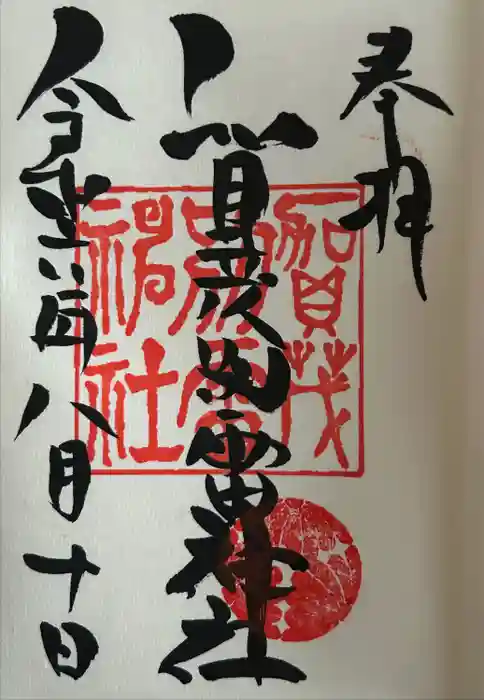 奉拝
賀茂別雷神社
令和 年 八月十日
賀茂
別雷
神社